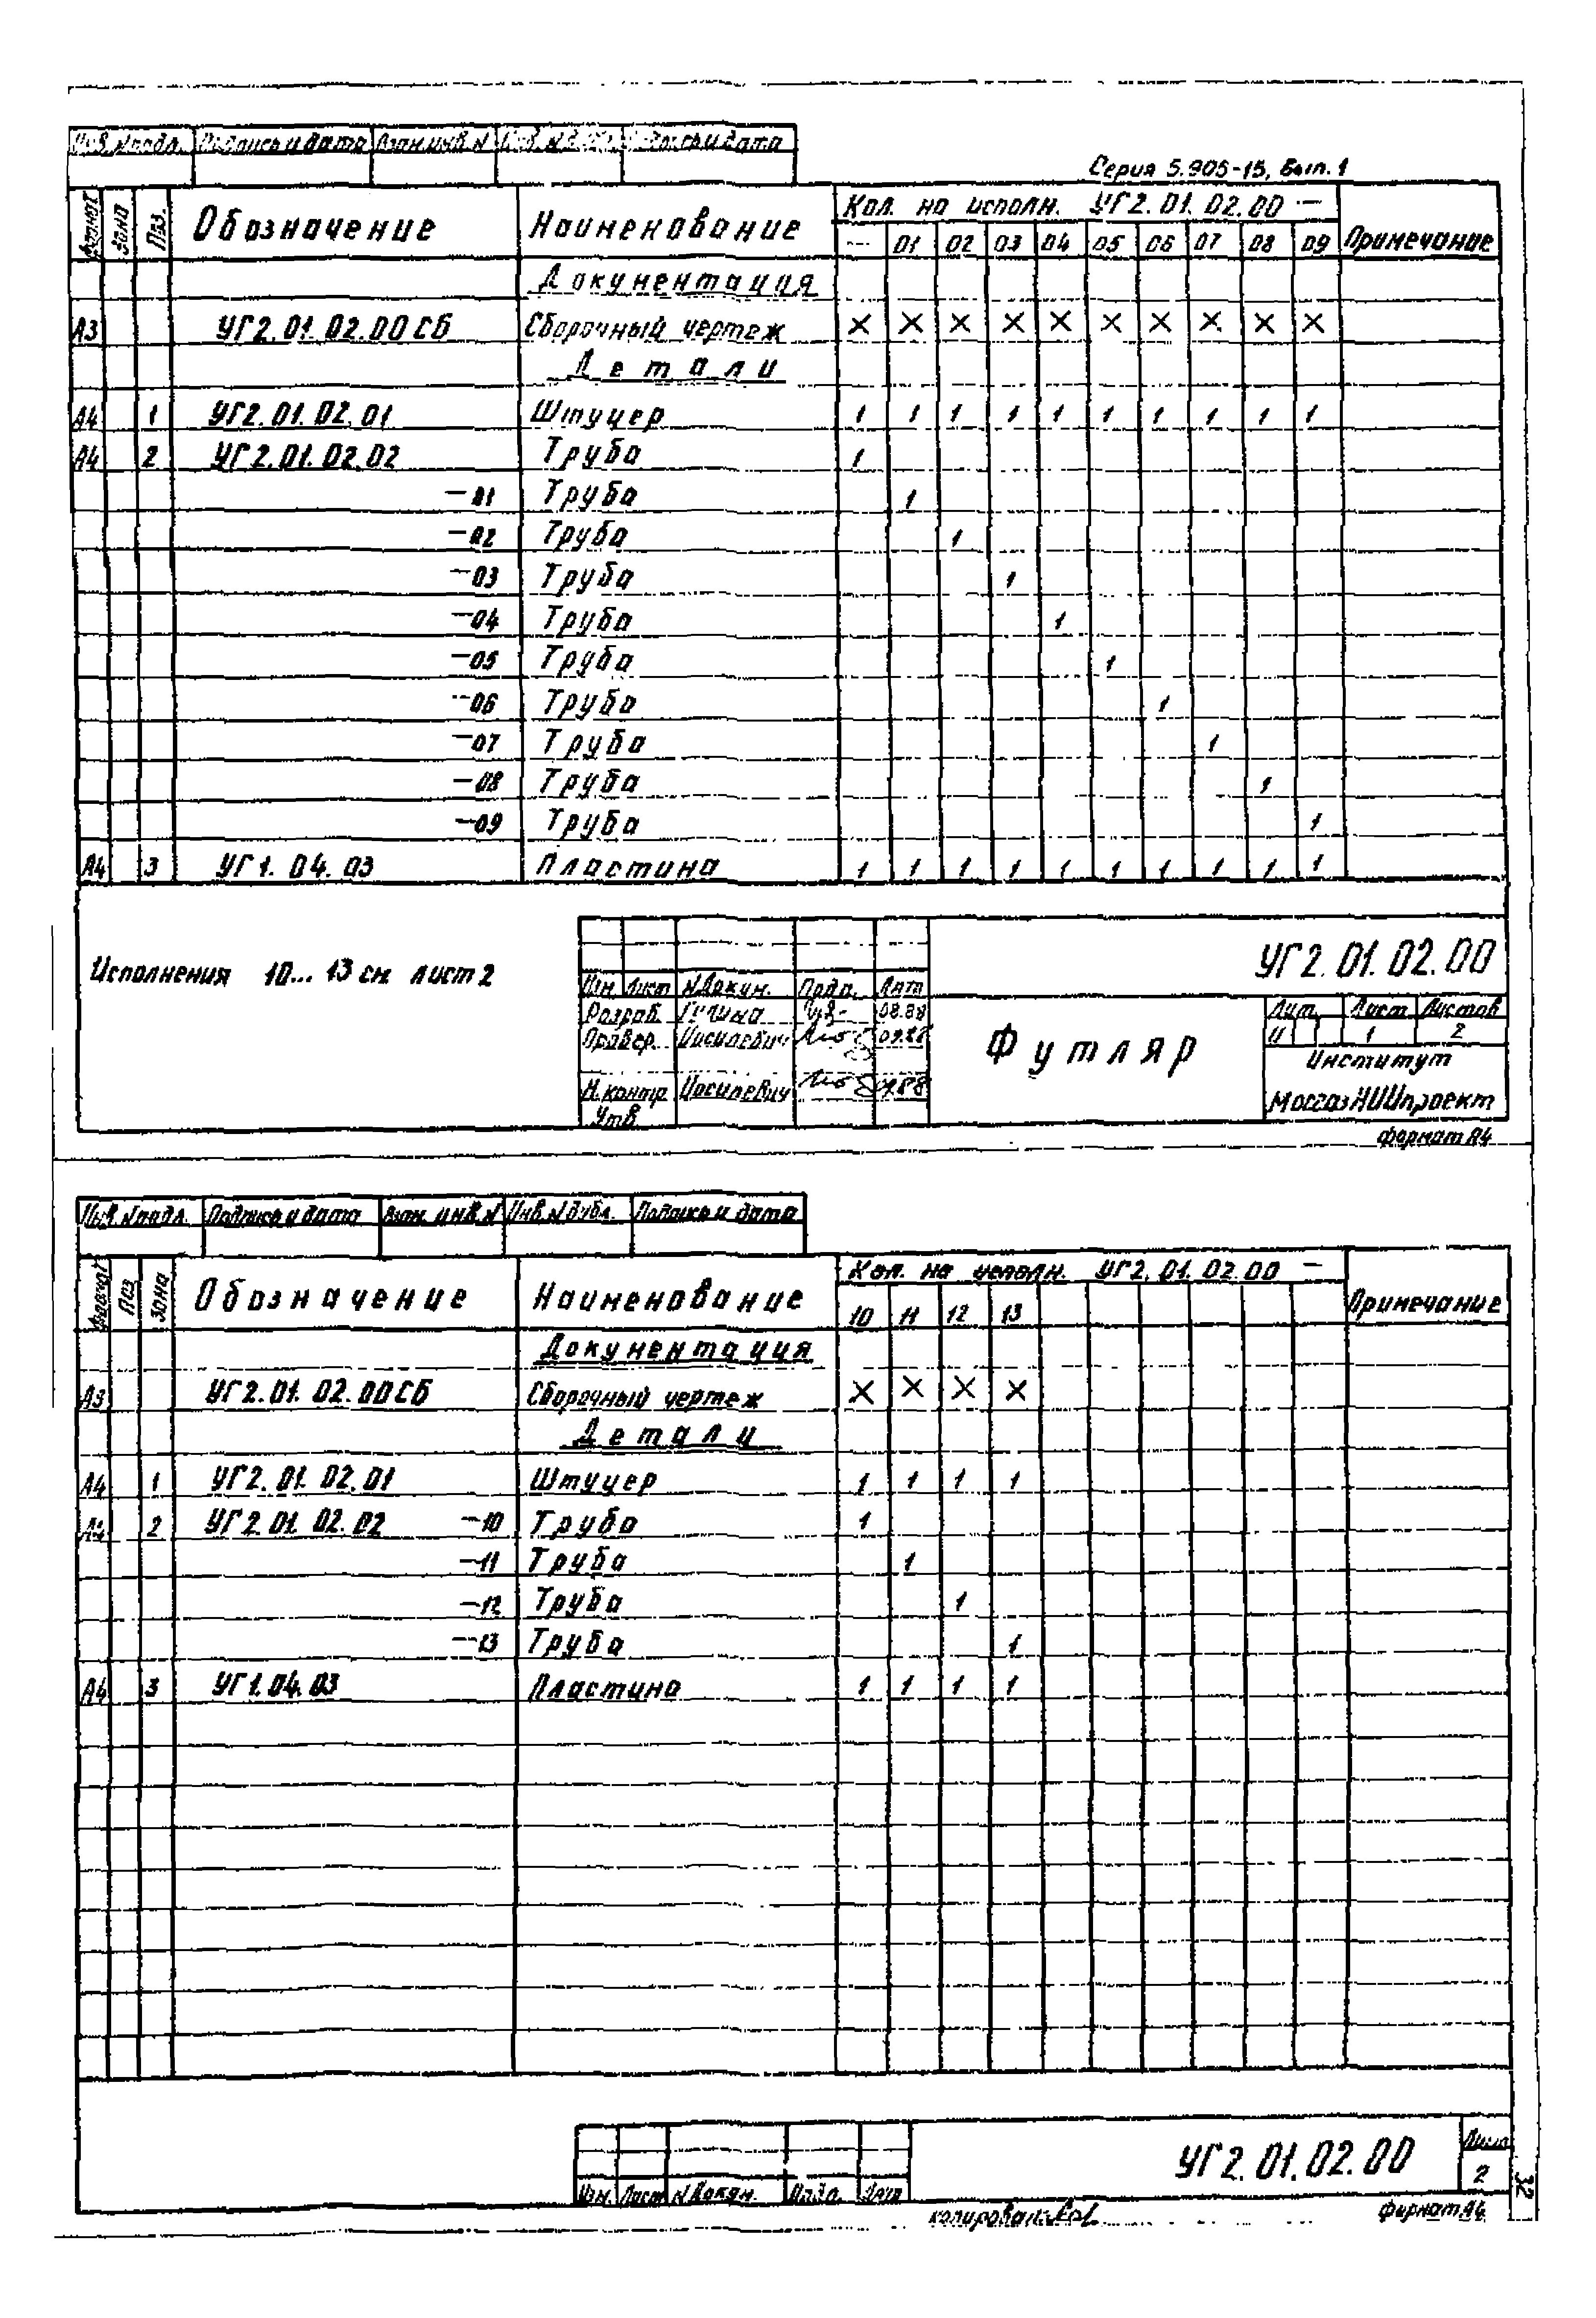 Инв. № подл. Подпись и дата Взам. инв. № Инв. № дубл. Подпись и дата
Серия 5.905-15, Вып. 1
Формат Зона Поз. Обозначение Наименование Кол. на исполн. УГ2.01.02.00 — Примечание
— 01 02 03 04 05 06 07 08 09
Документация
А3 УГ2.01.02.00СБ Сборочный чертеж × × × × × × × × × ×
Детали
А4 1 УГ2.01.02.01 Штуцер 1 1 1 1 1 1 1 1 1 1
А4 2 УГ2.01.02.02 Труба 1
—01 Труба 1
—02 Труба 1
—03 Труба 1
—04 Труба 1
—05 Труба 1
—06 Труба 1
—07 Труба 1
—08 Труба 1
—09 Труба 1
А4 3 УГ1.04.03 Пластина 1 1 1 1 1 1 1 1 1 1
Исполнения 10... 13 см лист 2
УГ2.01.02.00
Изм. Лист № Докум. Подп. Дата
Разраб. 08.88
Провер. Иосилевич
Н.контр Иосилевич
Утв
Футляр
Лит. Лист Листов
И 1 2
Институт
МосгазНИИпроект
Формат А4
Инв. № подл. Подпись и дата Взам. инв. № Инв. № дубл. Подпись и дата
Формат Поз Зона Обозначение Наименование Кол. на исполн. УГ2.01.02.00 — Примечание
10 11 12 13
Документация
А3 УГ2.01.02.00СБ Сборочный чертеж × × × ×
Детали
А4 1 УГ2.01.02.01 Штуцер 1 1 1 1
А4 2 УГ2.01.02.02 —10 Труба 1
—11 Труба 1
—12 Труба 1
—13 Труба 1
А4 3 УГ1.04.03 Пластина 1 1 1 1
УГ2.01.02.00
Лист
2
Изм. Лист № Докум. Подп. Дата
32
копировал
Формат А4